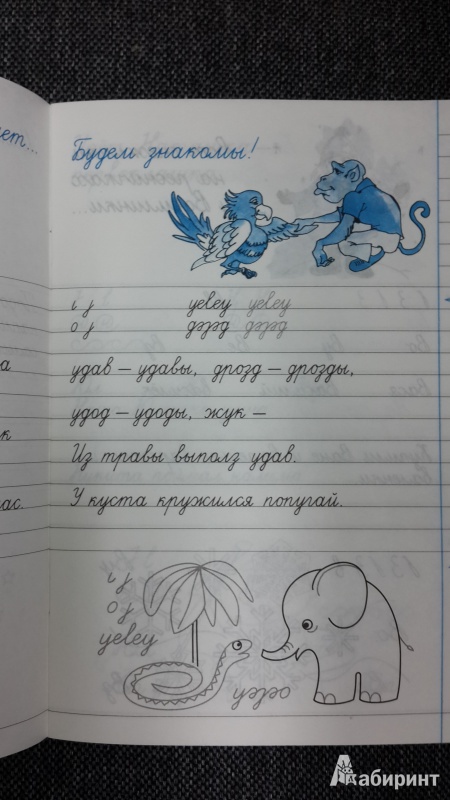 ет...
Будем знакомы!
а
удав – удавы, дрозд – дрозды,
удод – удоды, жук –
к
Из травы выполз удав.
ас.
У куста кружился попугай.
Лабиринт